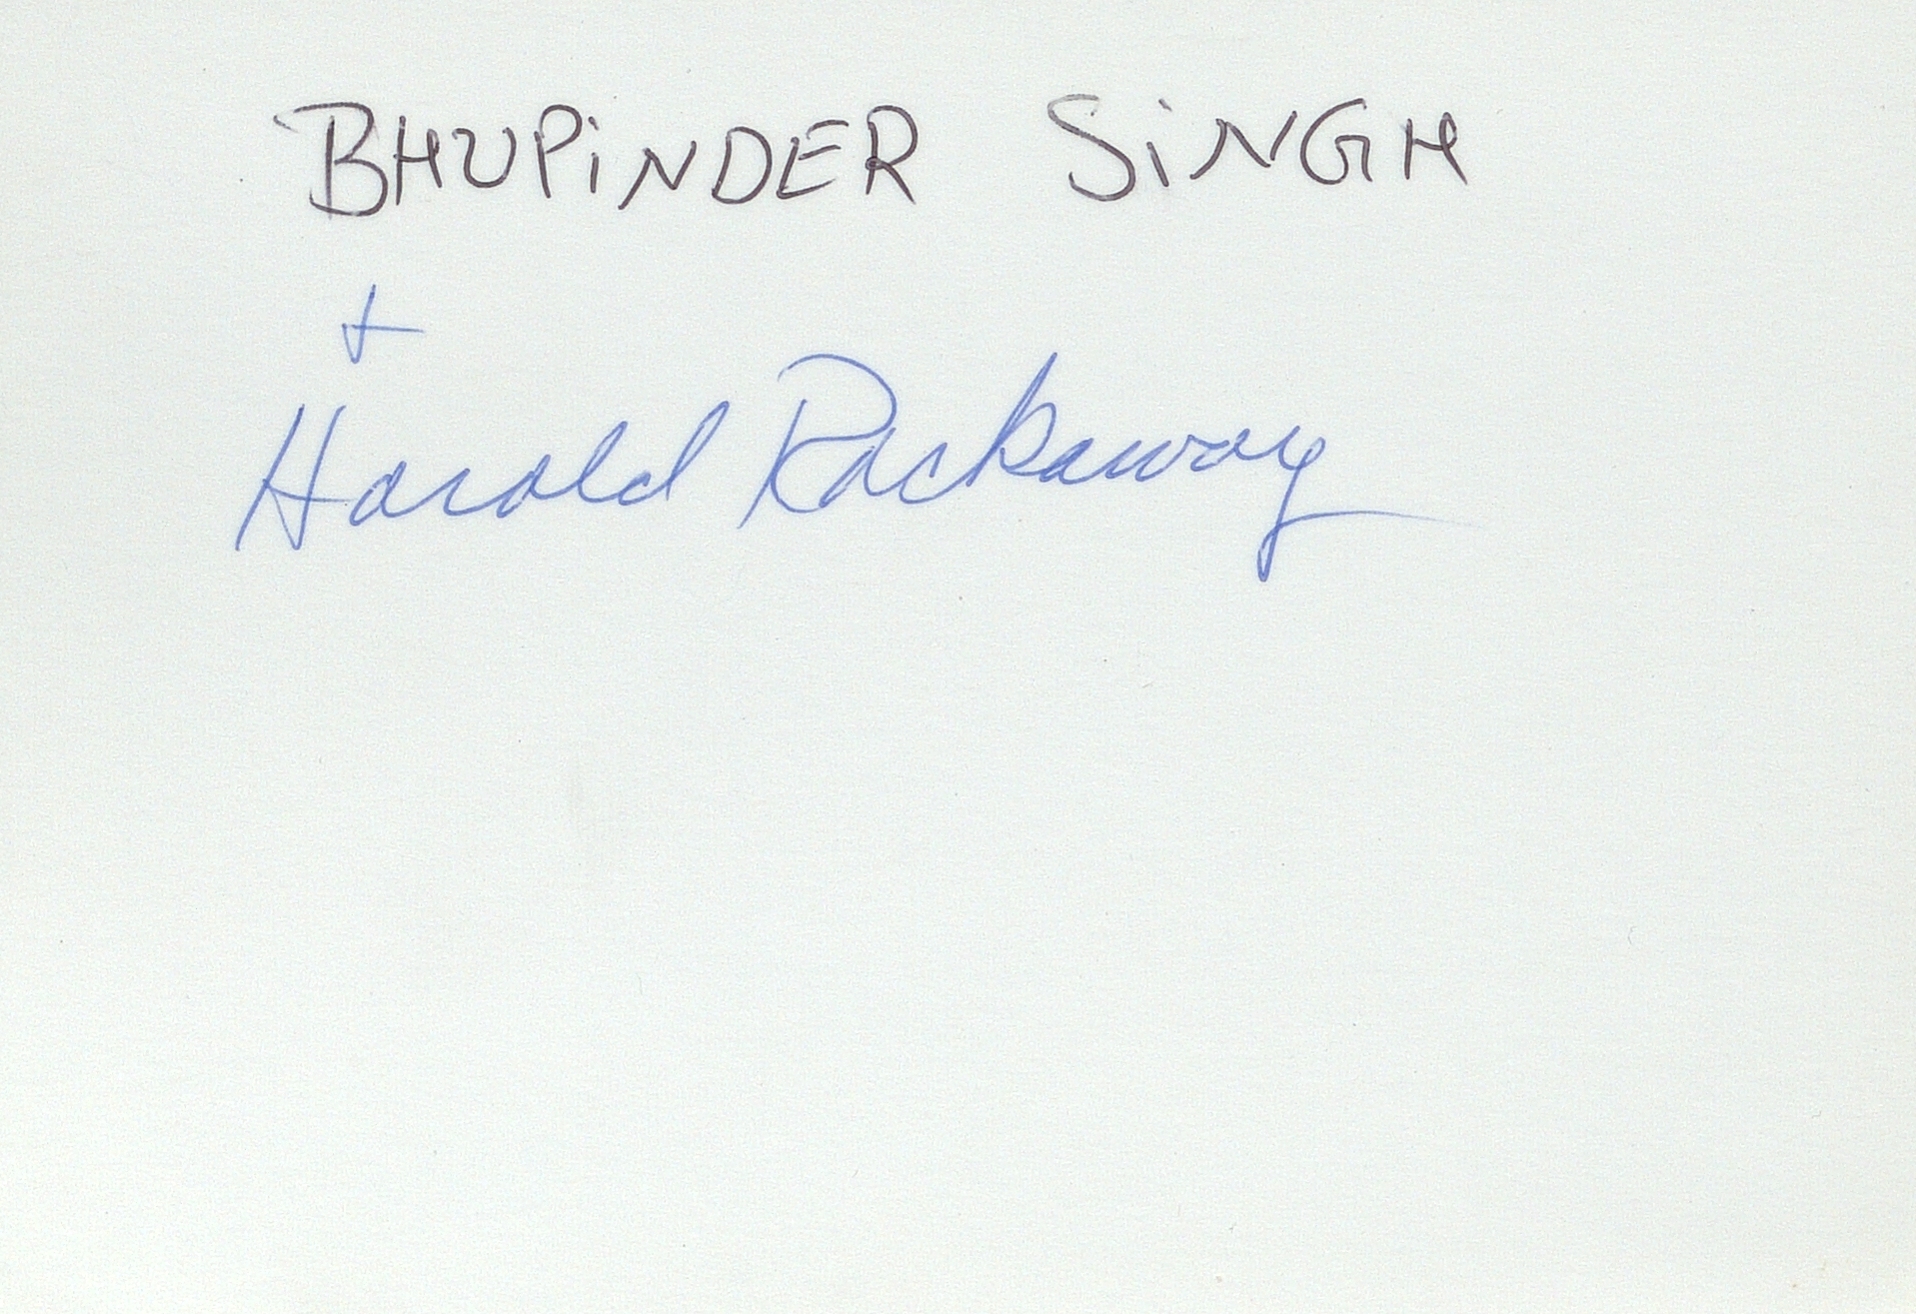 BHUPiNDER SiNGH
+
Harold Rackaway